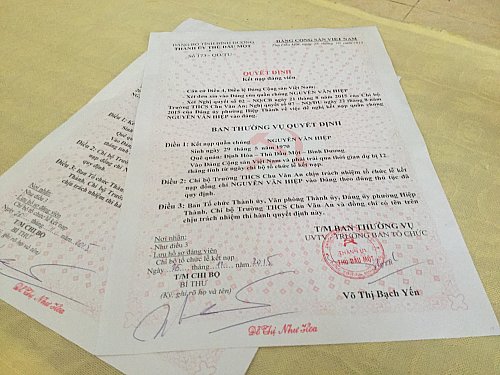 ĐẢNG BỘ TỈNH BÌNH DƯƠNG
THÀNH ỦY THỦ DẦU MỘT
ĐẢNG CỘNG SẢN VIỆT NAM
Số 173 - QĐ/TU
QUYẾT ĐỊNH
Kết nạp đảng viên
- Căn cứ Điều 4, Điều lệ Đảng Cộng sản Việt Nam;
- Xét đơn xin vào Đảng của quần chúng NGUYỄN VĂN HIỆP
- Xét Nghị quyết số 02 - NQ/CB ngày 21 tháng 8 năm 2015 của Chi bộ
Trường THCS Chu Văn An; Nghị quyết số 07 - NQ/ĐU ngày 22 tháng 8 năm
2015 của Đảng ủy phường Hiệp Thành về việc đề nghị kết nạp quần chúng
NGUYỄN VĂN HIỆP vào đảng.
BAN THƯỜNG VỤ QUYẾT ĐỊNH
Điều 1: Kết nạp quần chúng NGUYỄN VĂN HIỆP
Sinh ngày 29 tháng 5 năm 1970
Quê quán: Định Hòa - Thủ Dầu Một - Bình Dương.
Vào Đảng Cộng sản Việt Nam và phải trải qua thời gian dự bị 12
tháng tính từ ngày chi bộ tổ chức lễ kết nạp.
Điều 2: Chi bộ Trường THCS Chu Văn An chịu trách nhiệm tổ chức lễ kết
nạp đồng chí NGUYỄN VĂN HIỆP vào Đảng theo đúng thủ tục đã
quy định.
Điều 3: Ban Tổ chức Thành ủy, Văn phòng Thành ủy, Đảng ủy phường Hiệp
Thành, Chi bộ Trường THCS Chu Văn An và đồng chí có tên trên
chịu trách nhiệm thi hành quyết định này.
Nơi nhận:
Như điều 3
Lưu hồ sơ đảng viên
Chi bộ tổ chức lễ kết nạp
Ngày 16 tháng 11 năm 2015
T/M CHI BỘ
BÍ THƯ
(Ký, ghi rõ họ và tên)
Đỗ Thị Như Hoa
T/M BAN THƯỜNG VỤ
UVTV - TRƯỞNG BAN TỔ CHỨC
THỦ DẦU MỘT
Võ Thị Bạch Yến
Điều 1:
Điều 2:
Điều 3:
Nơi nhận:
Như điều 3
T/M CHI BỘ
BÍ THƯ
(Ký, ghi rõ họ và tên)
Đỗ Thị Như Hoa